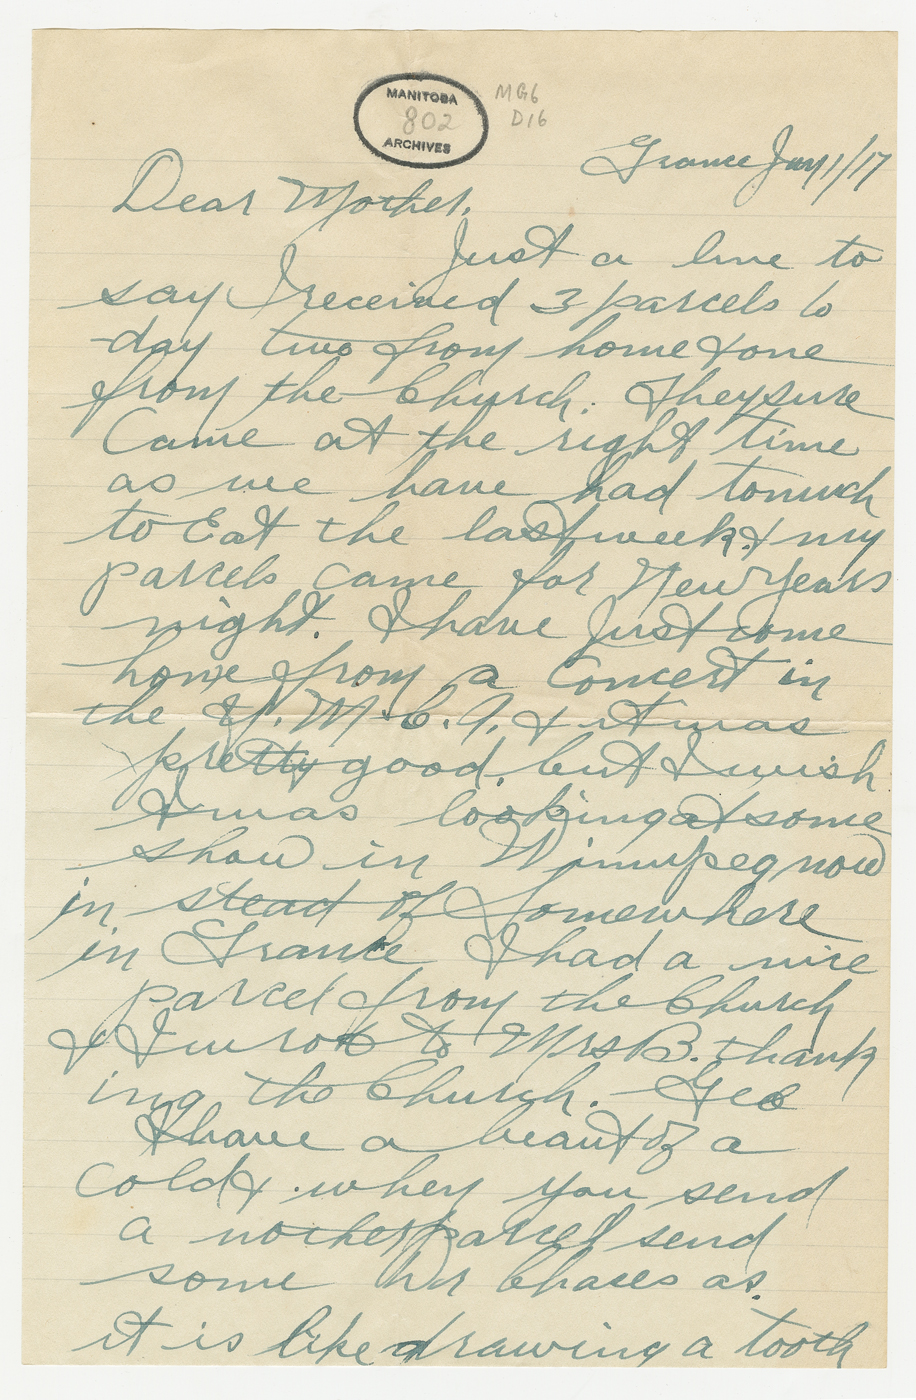 MANITOBA
802
ARCHIVES
MG6
D16
France Jan 1/17
Dear Mother.
Just a line to
say I received 3 parcels to
-day two from home & one
from the Church. They sure
Came at the right time
as we have had to much
to Eat the last week & my
parcels came for New Years
night. I have just come
home from a Concert in
the Y.M.C.A. & it was
pretty good, but I wish
I was looking at some
show in Winnipeg now
in stead of Somewhere
in France I had a nice
parcel from the Church
& I wrote to Mrs B. thank
ing the Church. Gee
I have a beaut of a
cold & when you send
a nother parcel send
some as.
it is like drawing a tooth